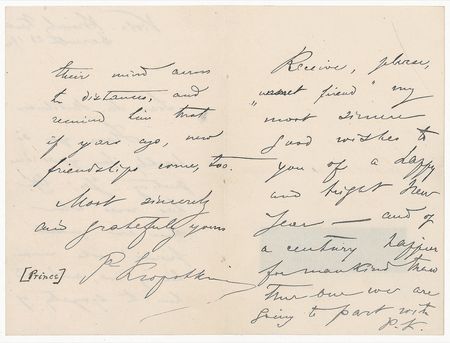 their mind across
to distances, and
remind him that
if years ago, new
friendships come, too.
Most sincerely
and gratefully yours
P. Kropotkin
[Prince]
Receive, please,
friend" my
most sincere
good wishes to
you, of a happy
and bright New
Year — and of
a century happier
for mankind than
the one we are
going to part with
P.K.